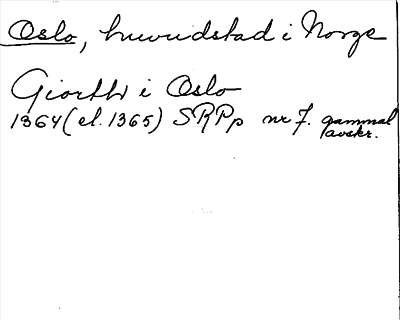 Oslo, huvudstad i Norge
Giorth i Oslo
1364 (el. 1365) SRPp nr 7. gammal
avskr.